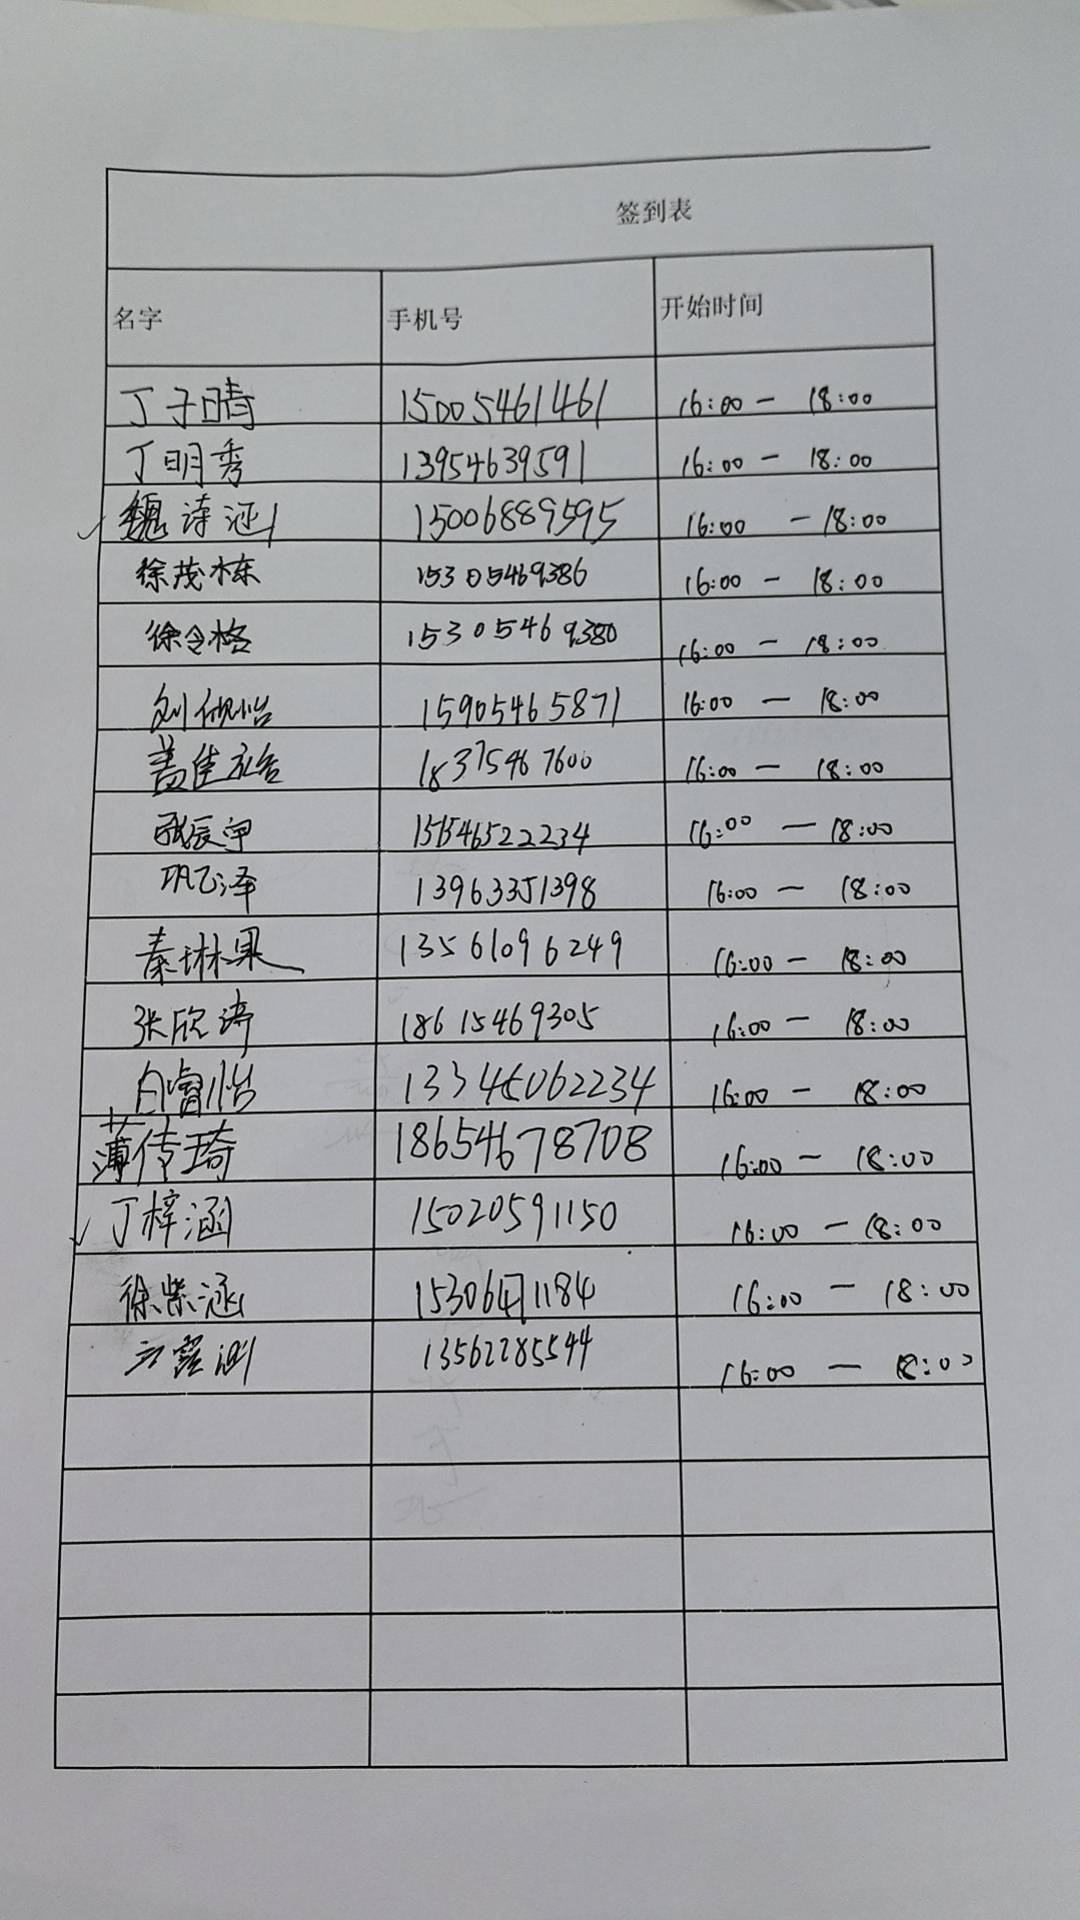 签到表
名字 手机号 开始时间
丁子晴 15005461461 16:00 — 18:00
丁明秀 13954639591 16:00 — 18:00
魏诗涵 15006889595 16:00 — 18:00
徐茂栋 15305469386 16:00 — 18:00
徐令格 15305469380 16:00 — 18:00
刘欣怡 15905465871 16:00 — 18:00
盖佳 18375467600 16:00 — 18:00
辰宇 151546522234 16:00 — 18:00
巩乙泽 13963351398 16:00 — 18:00
秦琳果 13561096249 16:00 — 18:00
张欣涛 18615469305 16:00 — 18:00
白睿怡 13345062234 16:00 — 18:00
薄传琦 18654678708 16:00 — 18:00
丁梓涵 15020591150 16:00 — 18:00
徐紫涵 15306471184 16:00 — 18:00
13562285544 16:00 — 18:00